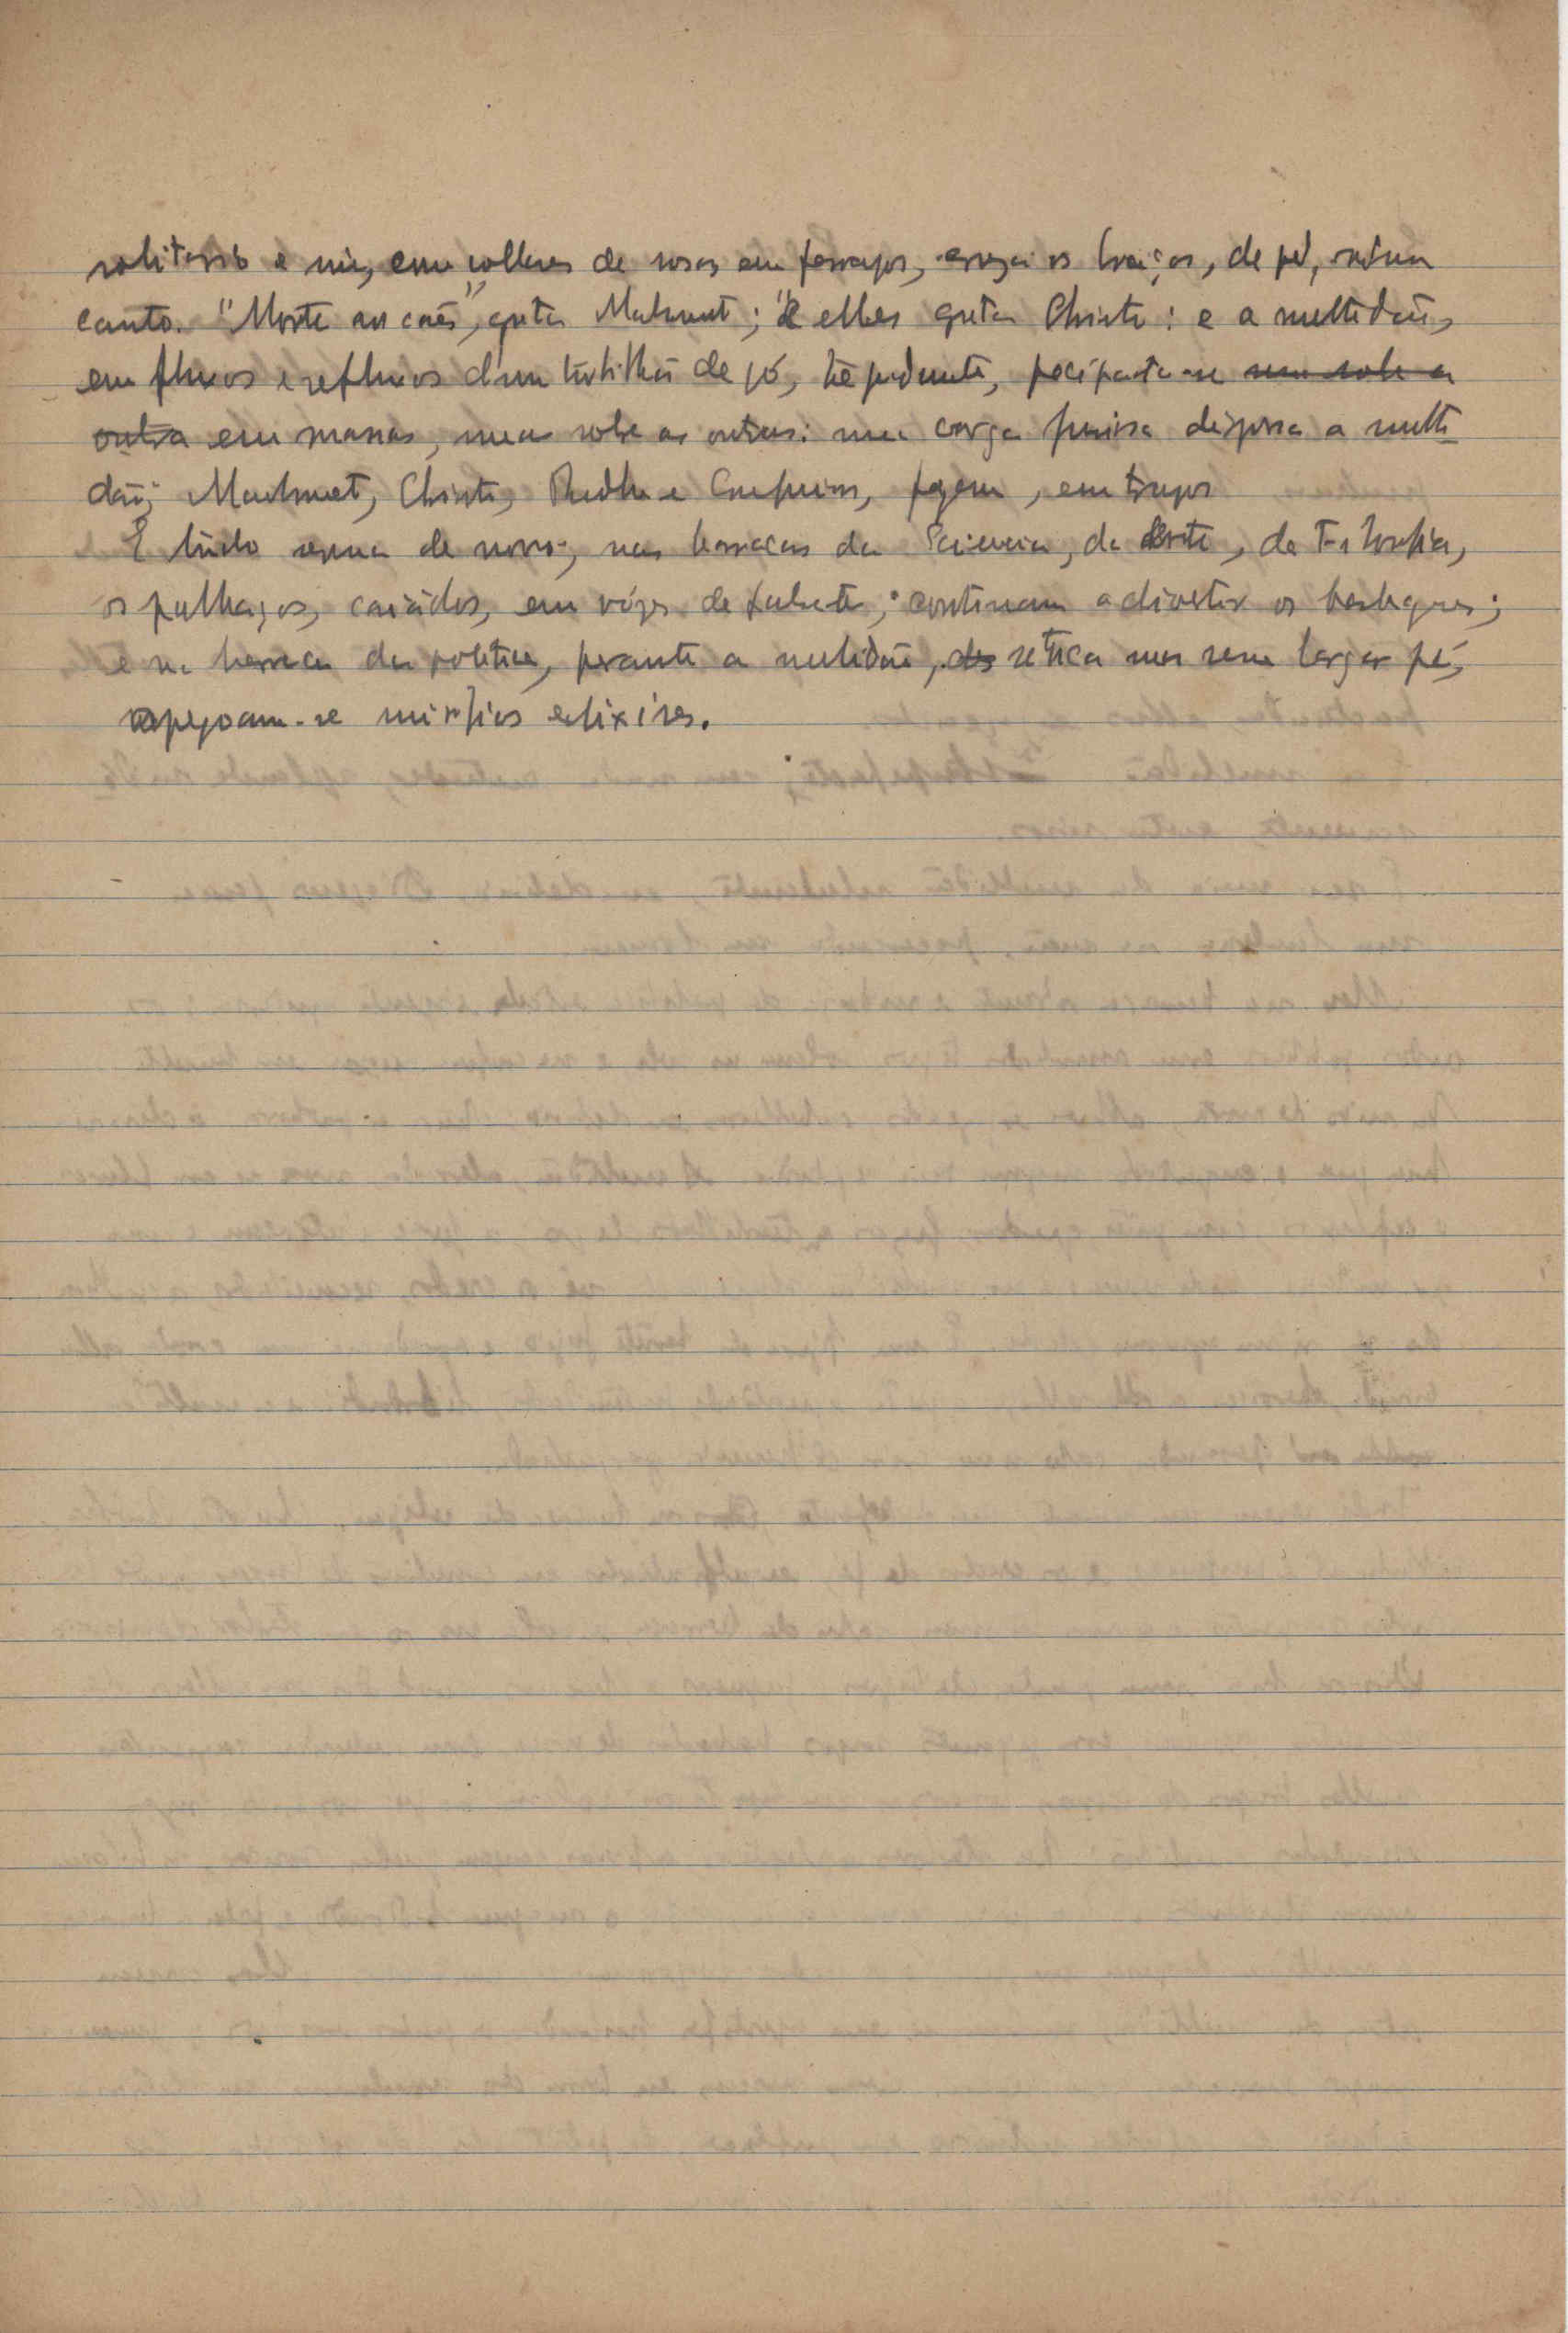 solitario e nú, com colhere de rosas em farrapos, cruza os braços, de pé, n'um
canto. "Morte aos cães", grita Mahomet; "a elles grita Christo: e a multidão,
em fluxos e refluxos d'um turbilhão de pó, trepidante, precipita-se uma sobre a
outra em massas, umas sobre as outras: uma carga furiosa dispersa a multi
dão; Mahomet, Christo, Budha e Confucius, fogem, em trapos
E tudo recua de novo, nas barracas da Sciencia, da Arte, da Filosofia,
os palhaços, caiádos, em vózes de falsete, continuam a divertir os basbaques;
e na barraca da politica, perante a multidão, sética mas sem largar pé,
apregoam-se mirificos elixires.